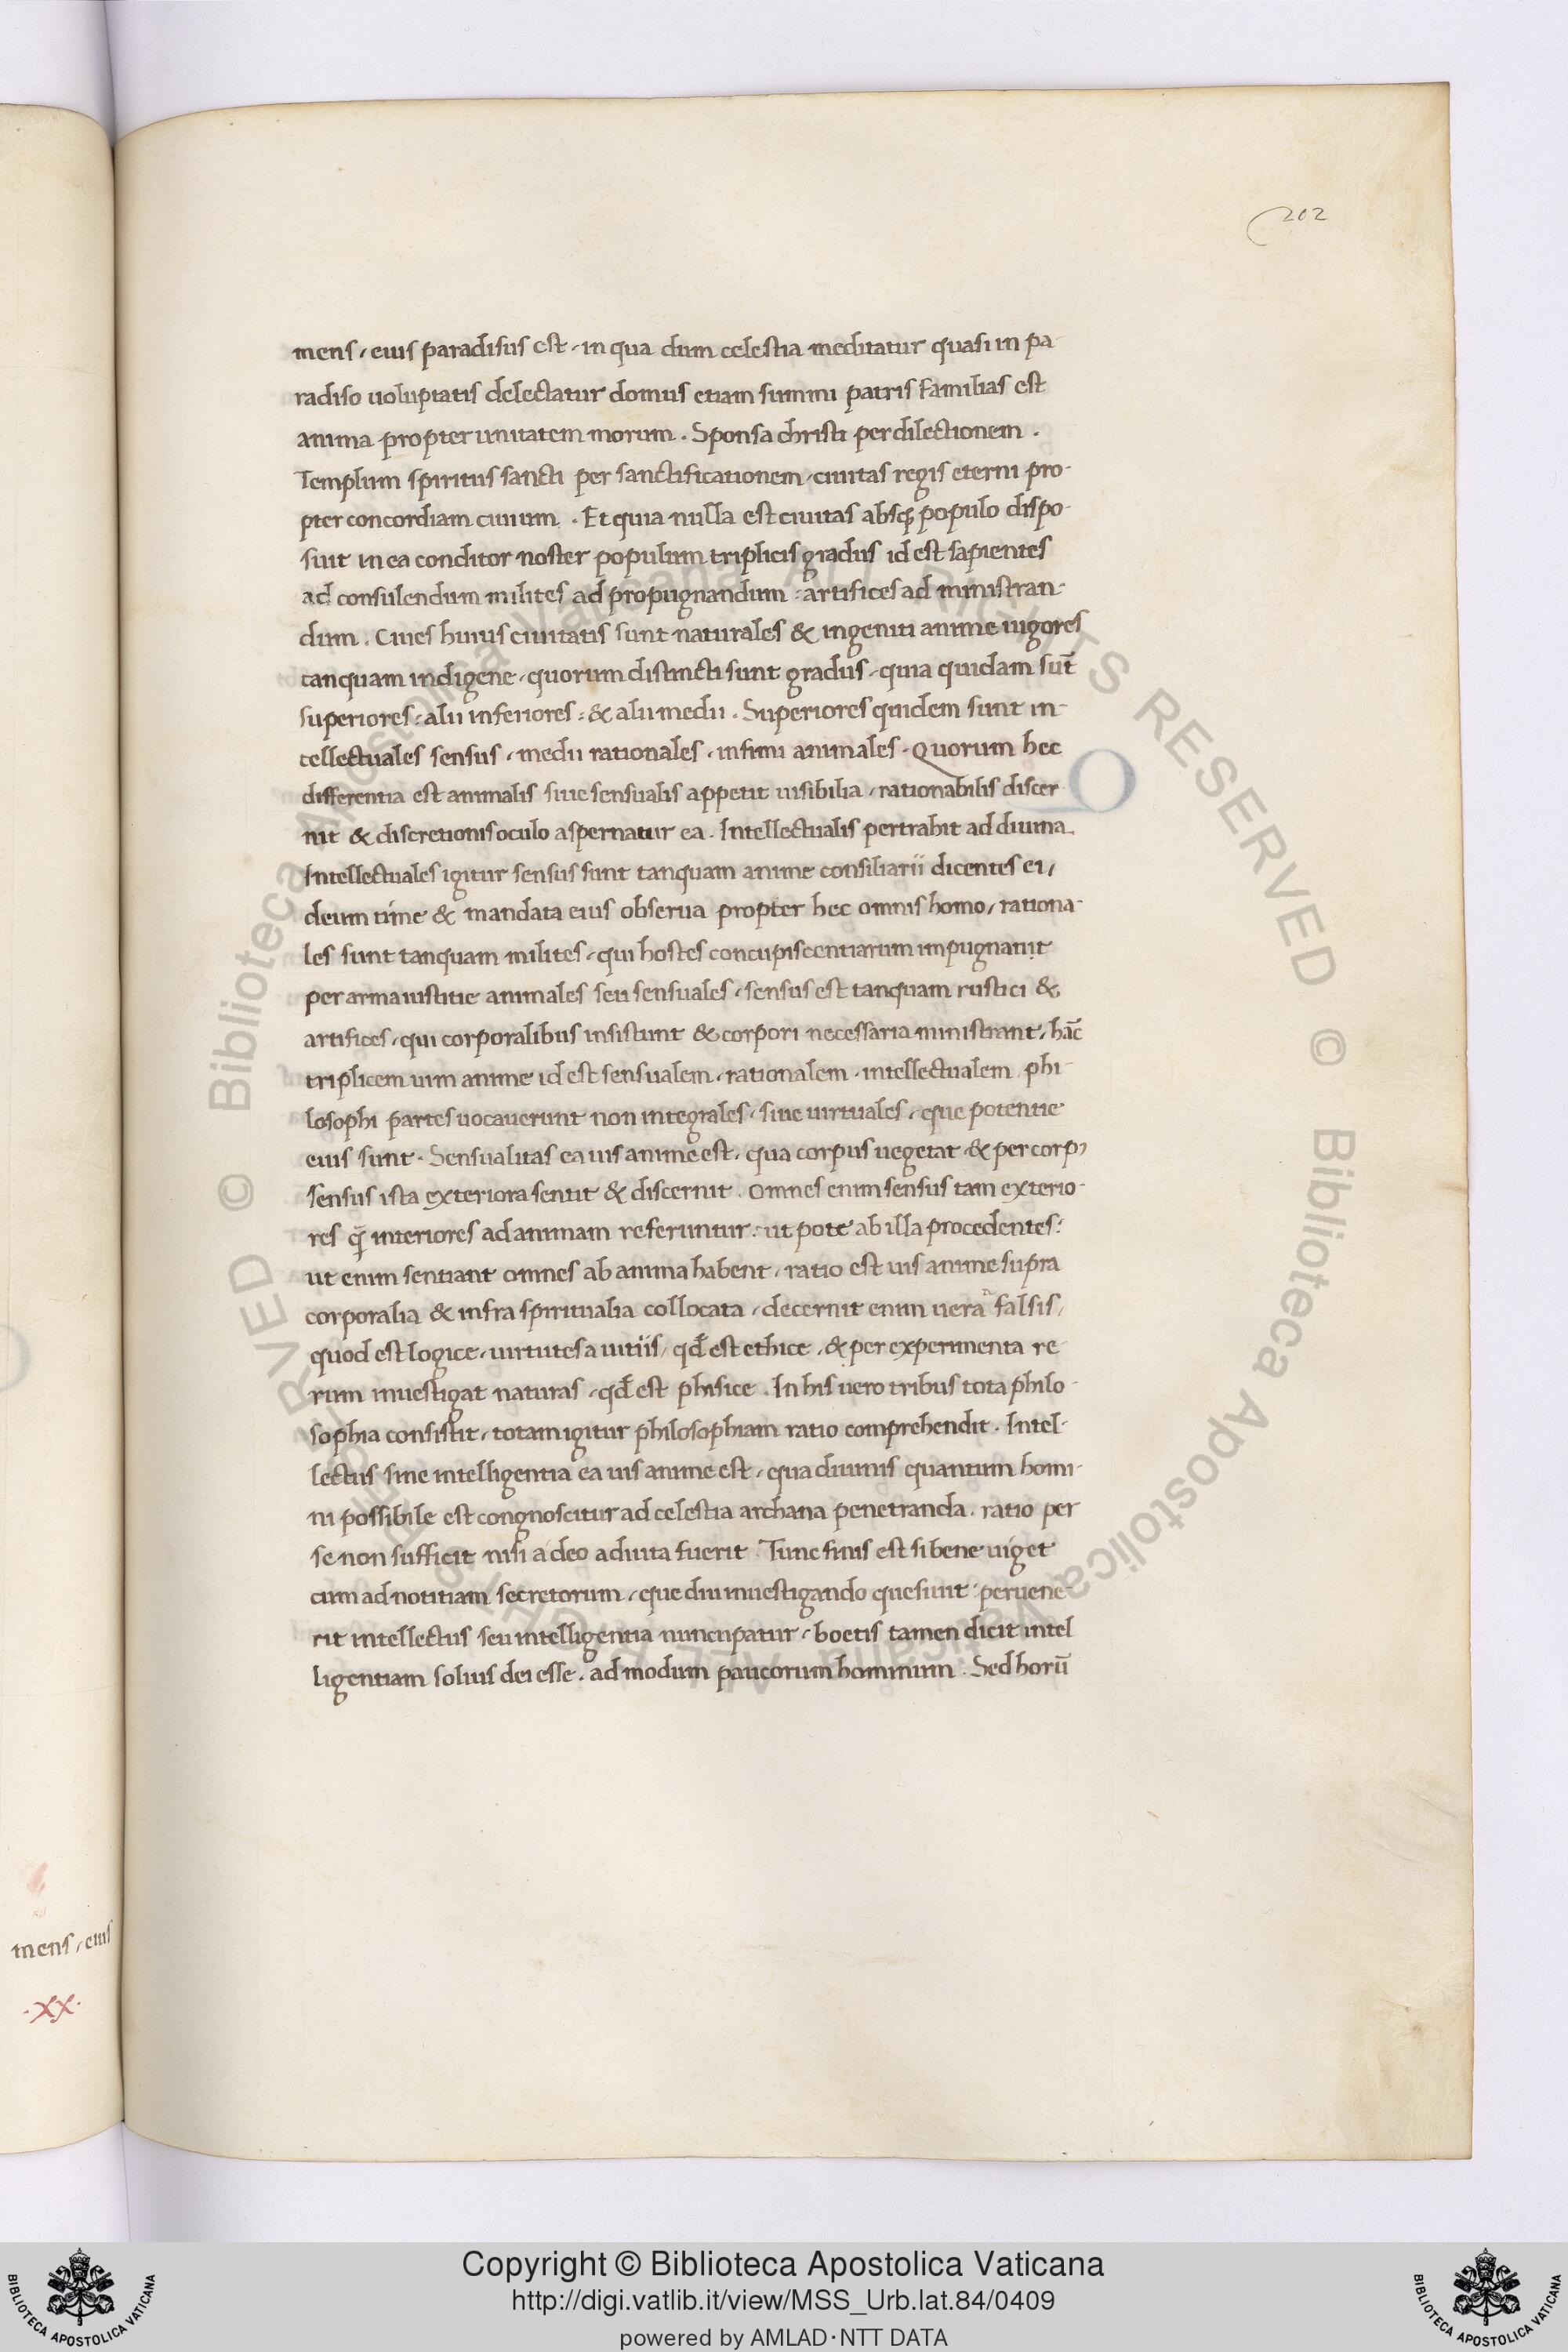 202
mens, eius paradisus est, in qua dum celestia meditatur quasi in pa
radiso uoluptatis delectatur domus etiam summi patris familias est
anima propter unitatem morum. Sponsa christi per dilectionem.
Templum spiritus sancti per sanctificationem, ciuitas regis eterni pro-
pter concordiam ciuium. Et quia nulla est ciuitas absqꝫ populo dispo-
suit in ea conditor noster populum triplicis gradus id est sapientes
ad consulendum milites ad propugnandum: artifices ad ministran-
dum. Ciues huius ciuitatis sunt naturales & ingeniti anime uigores
tanquam indigene, quorum distincti sunt gradus, quia quidam sūt
superiores: alii inferiores: & alii medii. Superiores quidem sunt in-
tellectuales sensus, medii rationales, infimi animales. Quorum hec
differentia est animalis siue sensualis appetit uisibilia, rationabilis discer
nit & discretionis oculo aspernatur ea. Intellectualis pertrahit ad diuina.
Intellectuales igitur sensus sunt tanquam anime consiliarii dicentes ei,
deum time & mandata eius obserua propter hec omnis homo, rationa-
les sunt tanquam milites, qui hostes concupiscentiarum impugnant
per arma iustitie animales seu sensuales, sensus est tanquam rustici &
artifices, qui corporalibus insistunt & corpori necessaria ministrant, hāc
triplicem uim anime id est sensualem, rationalem, intellectualem phi-
losophi partes uocauerunt non integrales, siue uirtuales, que potentie
eius sunt. Sensualitas ea uis anime est, qua corpus uegetat & per corpꝰ
sensus ista exteriora sentit & discernit. Omnes enim sensus tam exterio-
res qꝫ̄ interiores ad animam referuntur: ut pote ab illa procedentes:
ut enim sentiant omnes ab anima habent, ratio est uis anime supra
corporalia & infra spiritualia collocata, decernit enim uera falsis,
quod est logice, uirtutes a uitiis, qd̄ est ethice, & per experimenta re-
rum inuestigat naturas, qd̄ est phisice. In his uero tribus tota philo-
sophia consistit, totam igitur philosophiam ratio comprehendit. Intel-
lectus siue intelligentia ea uis anime est, qua diuinis quantum homi-
ni possibile est congnoscitur ad celestia archana penetranda, ratio per
se non sufficit nisi a deo adiuta fuerit. Tunc finis est si bene uiget
cum ad notitiam secretorum, que diu inuestigando quesiuit peruene-
rit intellectus seu intelligentia nuncupatur, boetis tamen dicit intel
ligentiam solius dei esse, ad modum paucorum hominum. Sed horū
mens, eius
.XX.
© Biblioteca Apostolica Vaticana ALL RIGHTS RESERVED © Biblioteca Apostolica Vaticana ALL RIGHTS RESERVED
Copyright © Biblioteca Apostolica Vaticana
http://digi.vatlib.it/view/MSS_Urb.lat.84/0409
powered by AMLAD·NTT DATA
BIBLIOTECA APOSTOLICA VATICANA
BIBLIOTECA APOSTOLICA VATICANA